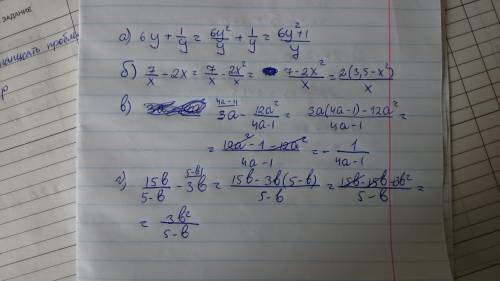 ЗАДАНИЕ
написать пробле
р
а) 6y + 1/y = 6y²/y + 1/y = 6y²+1/y
б) 7/x - 2x = 7/x - 2x²/x = 7-2x²/x = 2(3,5-x²)/x
в) 4a-1/ 3a - 12a²/4a-1 = 3a(4a-1)-12a²/4a-1 =
= 12a²-1-12a²/4a-1 = - 1/4a-1
г) 15b/5-b - 5-b/ 3b = 15b-3b(5-b)/5-b = 15b-15b+3b²/5-b =
= 3b²/5-b